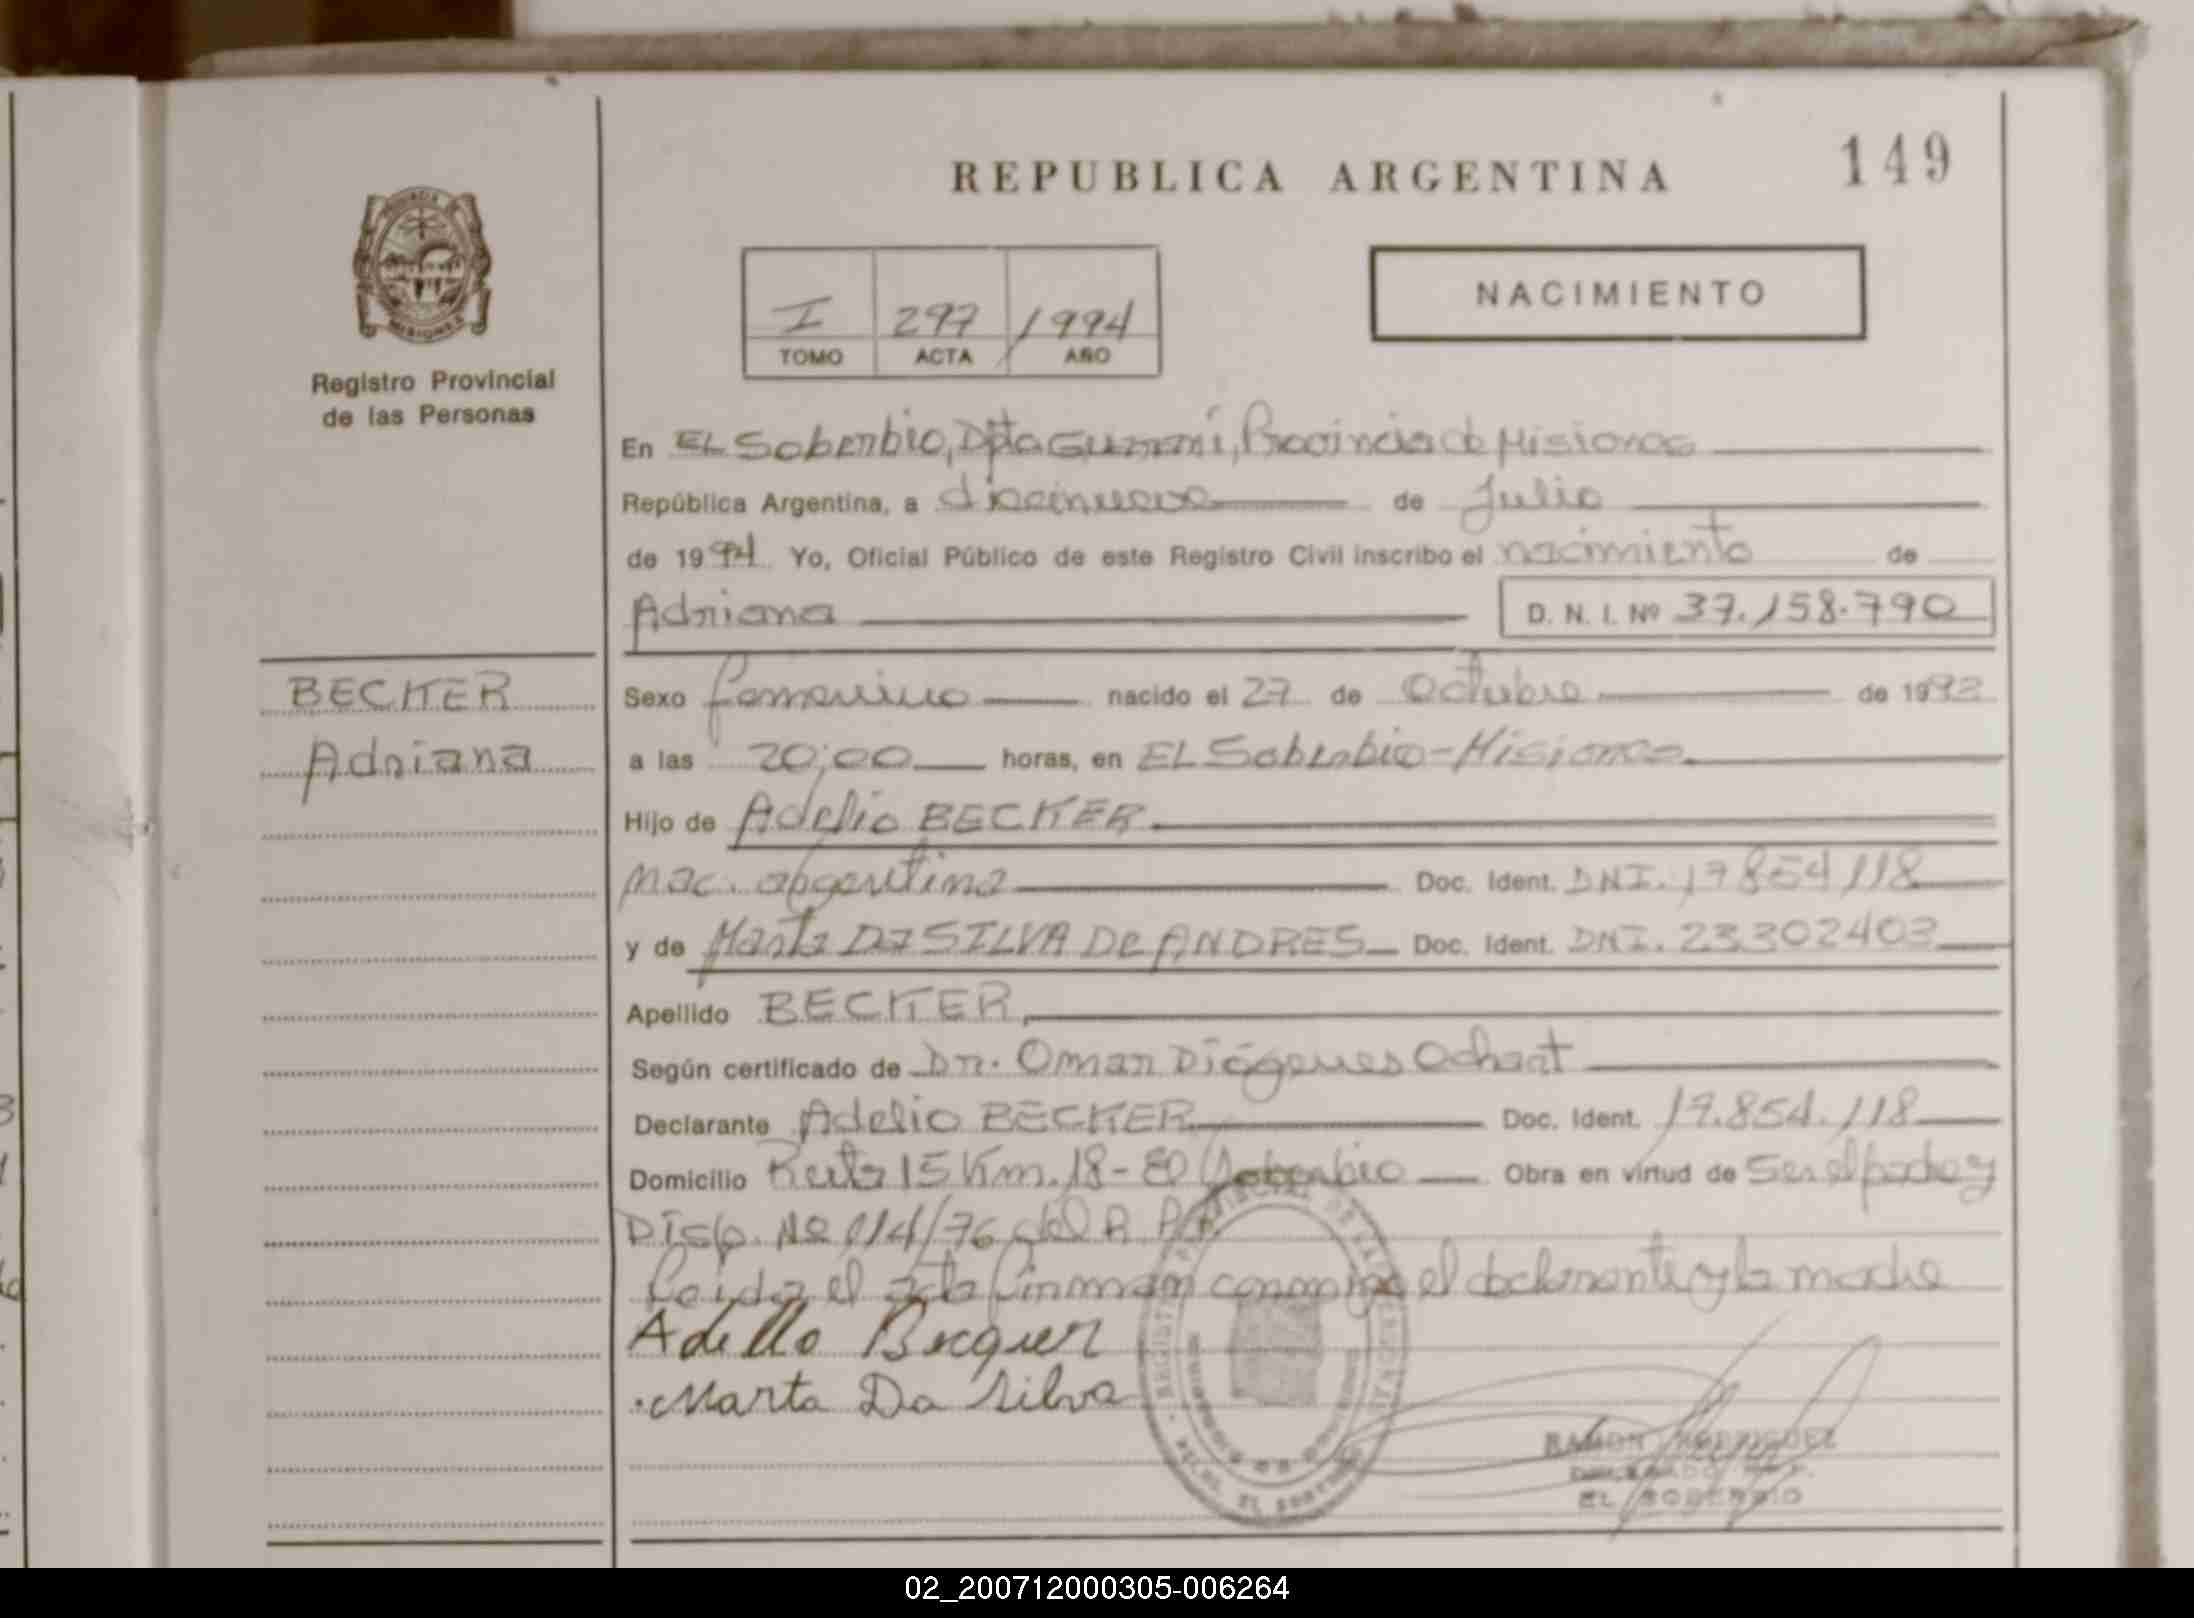 REPUBLICA ARGENTINA
149
PROVINCIA
MISIONES
Registro Provincial
de las Personas
I 297 1994
TOMO ACTA AÑO
NACIMIENTO
En EL Soberbio, Dpto Guaraní, Provincia de Misiones
República Argentina, a diecinueve de Julio
de 1994 Yo, Oficial Público de este Registro Civil inscribo el nacimiento de
Adriana D. N. I. Nº 37.158.790
BECKER
Adriana
Sexo femenino nacido el 27 de Octubre de 1992
a las 20:00 horas, en EL Soberbio - Misiones
Hijo de Adelio BECKER
Nac. argentina Doc. Ident. DNI. 17854118
y de Marta DA SILVA De ANDRES Doc. Ident. DNI. 23302403
Apellido BECKER
Según certificado de Dr. Omar Diógenes Ochart
Declarante Adelio BECKER Doc. Ident. 17.854.118
Domicilio Ruta 15 Km. 18 - El Soberbio Obra en virtud de Ser el padre y
Disp. Nº 114/76 del R. P. P.
Leida el acta firman conmigo el declarante y la madre
Adello Becquer
Marta Da Silva
RAMON RODRIGUEZ
DELEGADO R. P. P.
EL SOBERBIO
02_200712000305-006264